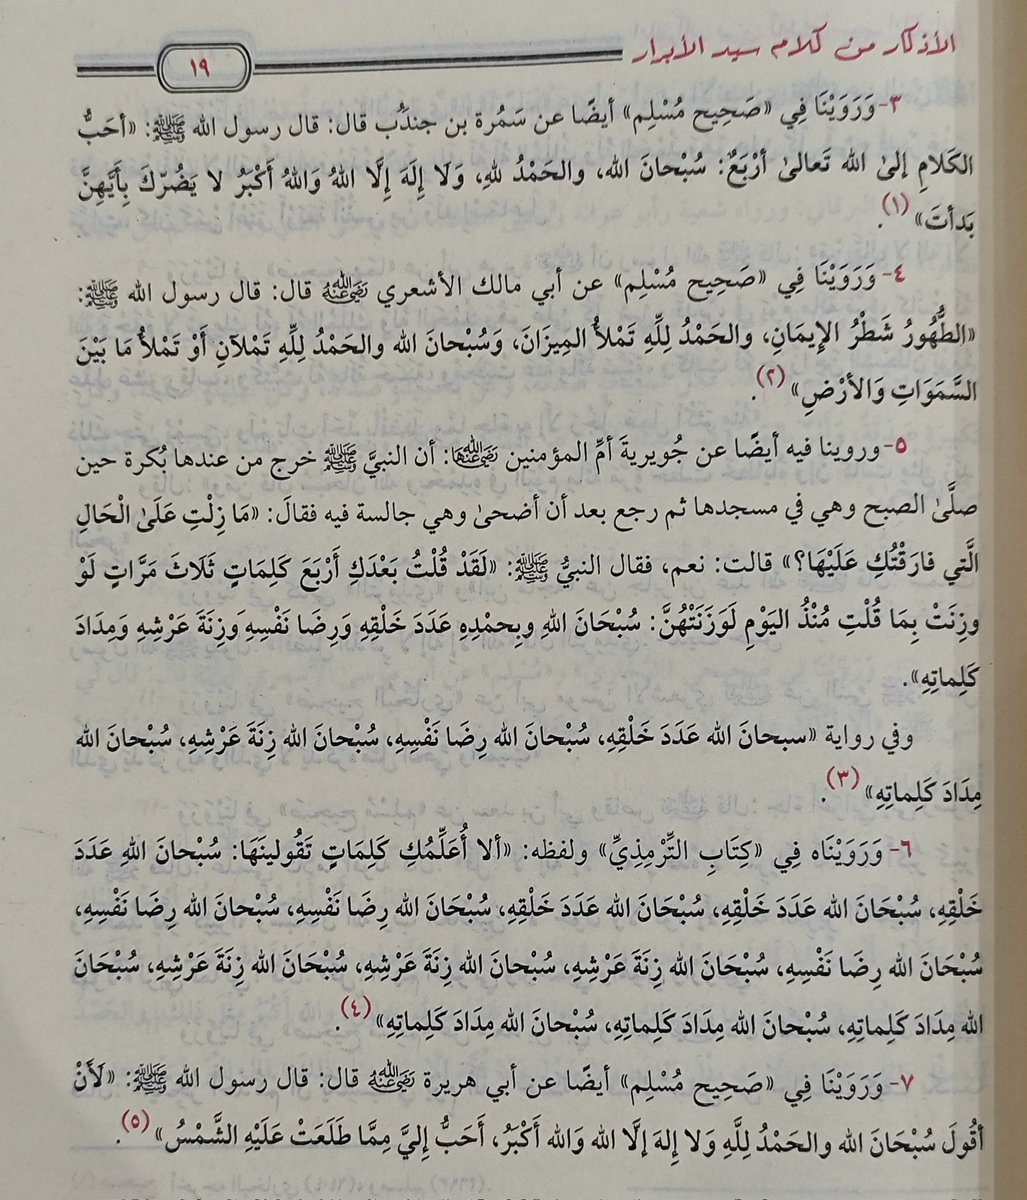 الأذكار من كلام سيد الأبرار
١٩
٣- وَرَوَيْنَا فِي «صَحِيح مُسْلِم» أيضًا عن سَمُرة بن جندَُب قال: قال رسول الله ﷺ: «أحَبُّ
الكَلامِ إلىٰ الله تَعالىٰ أرْبَعٌ: سُبْحانَ الله، والحَمْدُ للهِ، وَلا إِلَهَ إِلَّا اللهُ وَاللهُ أَكْبَرُ لا يَضُرّكَ بِأَيّهِنَّ
بَدأتَ» (١).
٤- وَرَوَيْنَا فِي «صَحِيح مُسْلِم» عن أبي مالك الأشعري رضي الله عنه قال: قال رسول الله ﷺ:
«الطُّهُورُ شَطْرُ الإِيمَانِ، والحَمْدُ لِلَّهِ تَمْلأُ المِيزَانَ، وَسُبْحانَ الله والحَمْدُ لِلَّهِ تَمْلآنِ أَوْ تَمْلأُ مَا بَيْنَ
السَّمَوَاتِ وَالأرْضِ» (٢).
٥- وروينا فيه أيضًا عن جُويريةَ أمِّ المؤمنين رضي الله عنها: أن النبيَّ ﷺ خرج من عندها بُكرة حين
صلَّىٰ الصبح وهي في مسجدها ثم رجع بعد أن أضحىٰ وهي جالسة فيه فقالَ: «مَا زِلْتِ عَلَىٰ الْحَالِ
الَّتي فارَقْتُكِ عَلَيْهَا؟» قالت: نعم، فقال النبيُّ ﷺ: «لَقَدْ قُلْتُ بَعْدَكِ أَرْبَعَ كَلِمَاتٍ ثَلَاثَ مَرَّاتٍ لَوْ
وزِنَتْ بِمَا قُلْتِ مُنْذُ اليَوْمِ لَوَزَنَتْهُنَّ: سُبْحَانَ اللهِ وبِحمْدِهِ عَدَدَ خَلْقِهِ وَرِضَا نَفْسِهِ وَزِنَةَ عَرْشِهِ وَمِدَادَ
كَلِماتِهِ».
وفي رواية «سبحانَ الله عَدَدَ خَلْقِهِ، سُبْحَانَ الله رِضَا نَفْسِهِ، سُبْحَانَ الله زِنَةَ عَرْشِهِ، سُبْحَانَ الله
مِدَادَ كَلِماتِهِ» (٣).
٦- وَرَوَيْنَاه فِي «كِتَابِ التِّرْمِذِيِّ» ولفظه: «ألا أُعَلِّمُكِ كَلِمَاتٍ تَقُولينَهَا: سُبْحَانَ اللهِ عَدَدَ
خَلْقِهِ، سُبْحَانَ الله عَدَدَ خَلْقِهِ، سُبْحَانَ الله عَدَدَ خَلْقِهِ، سُبْحَانَ الله رِضَا نَفْسِهِ، سُبْحَانَ الله رِضَا نَفْسِهِ،
سُبْحَانَ الله رِضَا نَفْسِهِ، سُبْحَانَ الله زِنَةَ عَرْشِهِ، سُبْحَانَ الله زِنَةَ عَرْشِهِ، سُبْحَانَ الله زِنَةَ عَرْشِهِ، سُبْحَانَ
الله مِدَادَ كَلِماتِهِ، سُبْحَانَ الله مِدَادَ كَلِماتِهِ، سُبْحَانَ الله مِدَادَ كَلِماتِهِ» (٤).
٧- وَرَوَيْنَا فِي «صَحِيح مُسْلِم» أيضًا عن أبي هريرة رضي الله عنه قال: قال رسول الله ﷺ: «لَأَنْ
أقُولَ سُبْحَانَ الله والحَمْدُ لِلَّهِ وَلا إلهَ إلَّا الله وَالله أكْبَرُ، أحَبُّ إليَّ مِمَّا طَلَعَتْ عَلَيْهِ الشَّمْسُ» (٥).